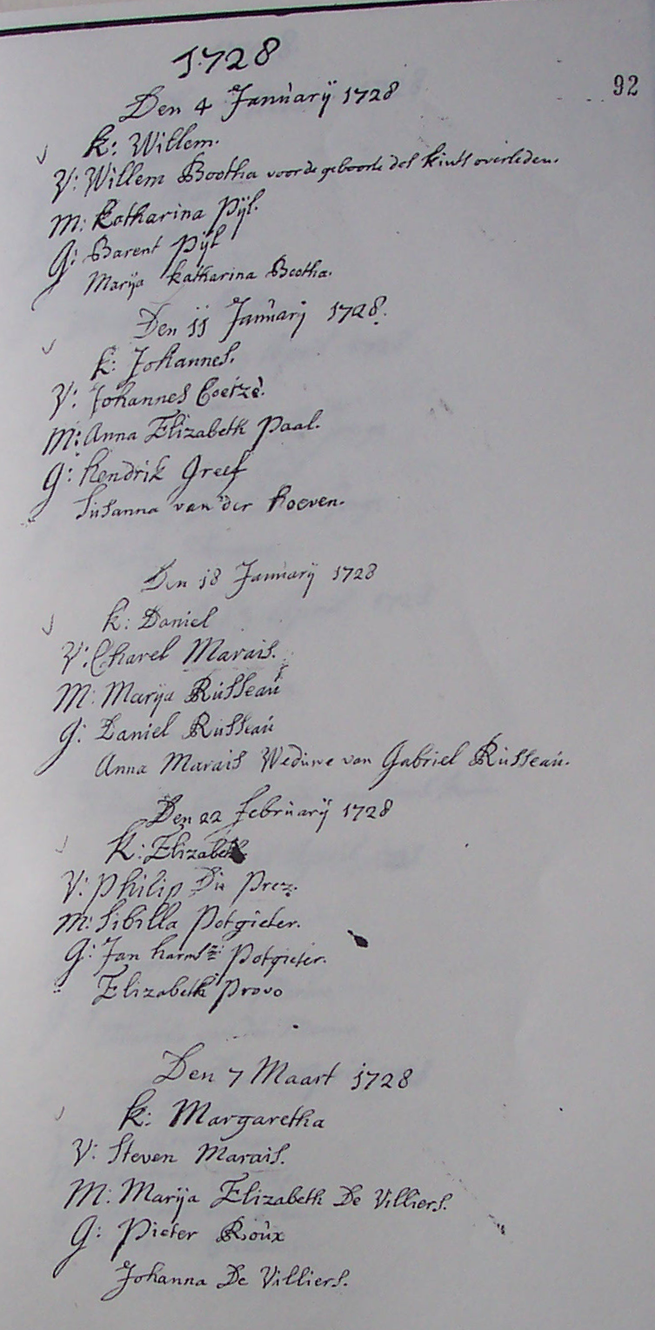 1728
92
Den 4 Januarij 1728
K: Willem.
V: Willem Bootha voor de geboorte des kints overleden.
M: Katharina Pÿl.
G: Barent Pÿl
Marija Katharina Bootha.
Den 11 Januarij 1728.
K: Johannes.
V: Johannes Coetzé.
M: Anna Elizabeth Paal.
G: Hendrik Greef
Susanna van der Hoeven.
Den 18 Januarij 1728
K: Daniel
V: Charel Marais.
M: Marija Russeau
G: Daniel Russeau
Anna Marais Weduwe van Gabriel Russeau.
Den 22 Februarij 1728
K: Elizabeth
V: Philip Du Prez.
M: Sibilla Potgieter.
G: Jan Harmsz: Potgieter.
Elizabeth Provo
Den 7 Maart 1728
K: Margaretha
V: Steven Marais.
M: Marija Elizabeth De Villiers.
G: Pieter Roux
Johanna De Villiers.